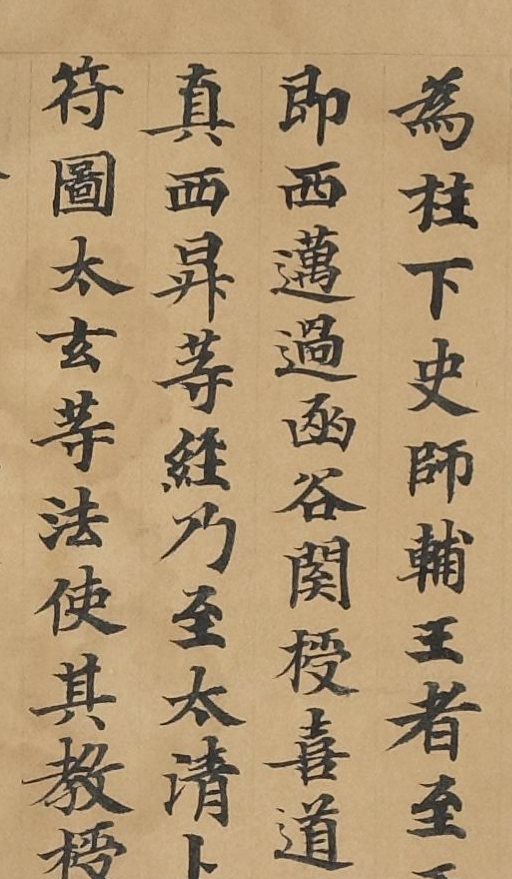 為柱下史師輔王者至
即西邁過函谷関授喜道
真西昇等經乃至太清
符圖太玄等法使其教授